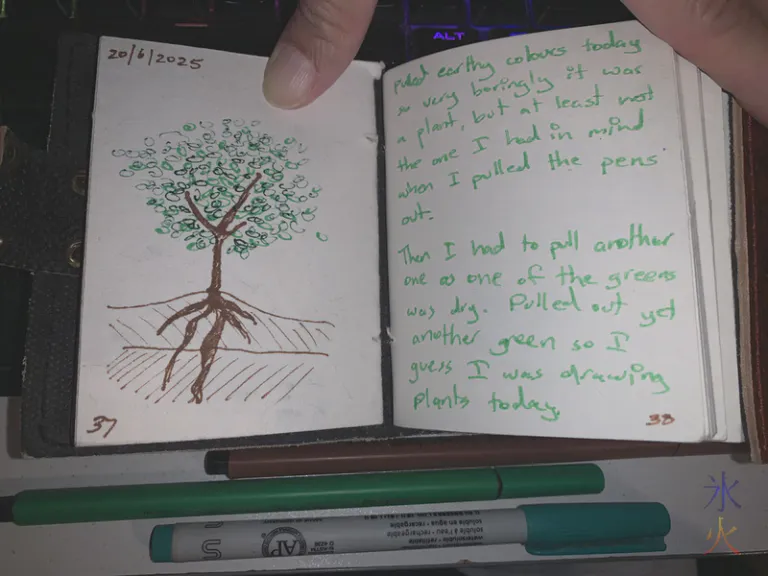 ALT
20/6/2025
37
pulled earthy colours today
so very boringly it was
a plant, but at least not
the one I had in mind
when I pulled the pens
out.
Then I had to pull another
one as one of the greens
was dry. Pulled out yet
another green so I
guess I was drawing
plants today.
38
S
AP
soluble en agua · recargable
soluble à l'eau · rechargeable
氷
火